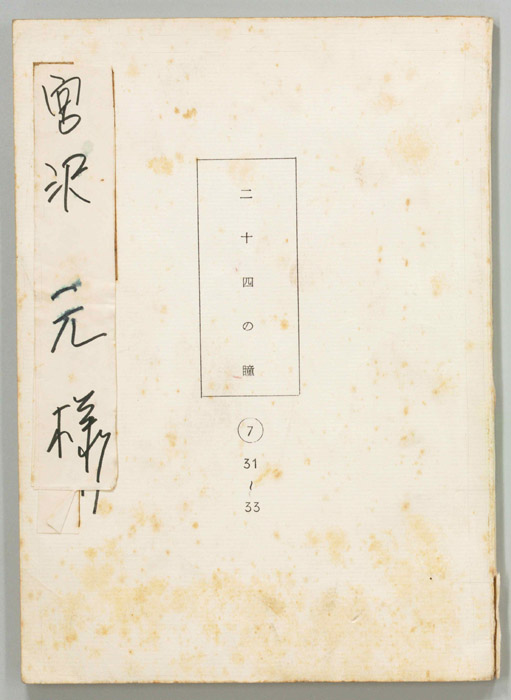 二十四の瞳
⑦
31
～
33
宮沢 元 様